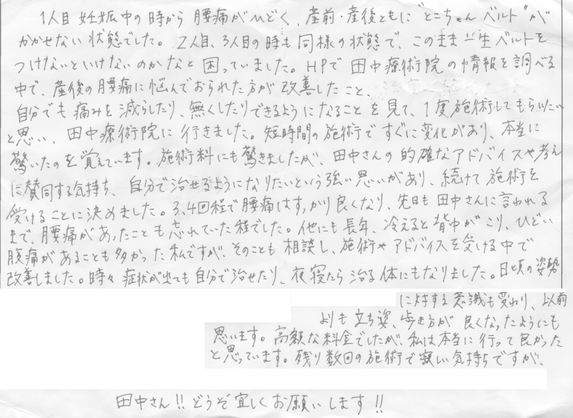 1人目 妊娠中の時から 腰痛がひどく、産前・産後ともに"とこちゃんベルト"が
かかせない状態でした。2人目、3人目の時も同様の状態で、このまま一生ベルトを
つけないといけないのかなと 困っていました。HPで 田中療術院の情報を調べる
中で、産後の腰痛に悩んでおられた方が改善したこと、
自分でも痛みを減らしたり、無くしたりできるようになることを見て、1度施術してもらいたい
と思い、田中療術院に行きました。短時間の施術ですぐに変化があり、本当に
驚いたのを覚えています。施術料にも驚きましたが、田中さんの的確なアドバイスや考え
に賛同する気持ち、自分で治せるようになりたいという強い思いがあり、続けて施術を
受けることに決めました。3、4回程で腰痛はすっかり良くなり、先日も田中さんに言われる
まで、腰痛があったことも忘れていた程でした。他にも長年、冷えると背中がこり、ひどい
腹痛があることも多かった私ですが、そのことも相談し、施術やアドバイスを受ける中で
改善しました。時々症状が出ても自分で治せたり、夜寝たら治る体にもなりました。日頃の姿勢
に対する意識も変わり、以前
よりも立ち姿、歩き方が良くなったようにも
思います。高額な料金でしたが、私は本当に行って良かった
と思っています。残り数回の施術で寂しい気持ちですが、
田中さん!!どうぞ宜しくお願いします!!